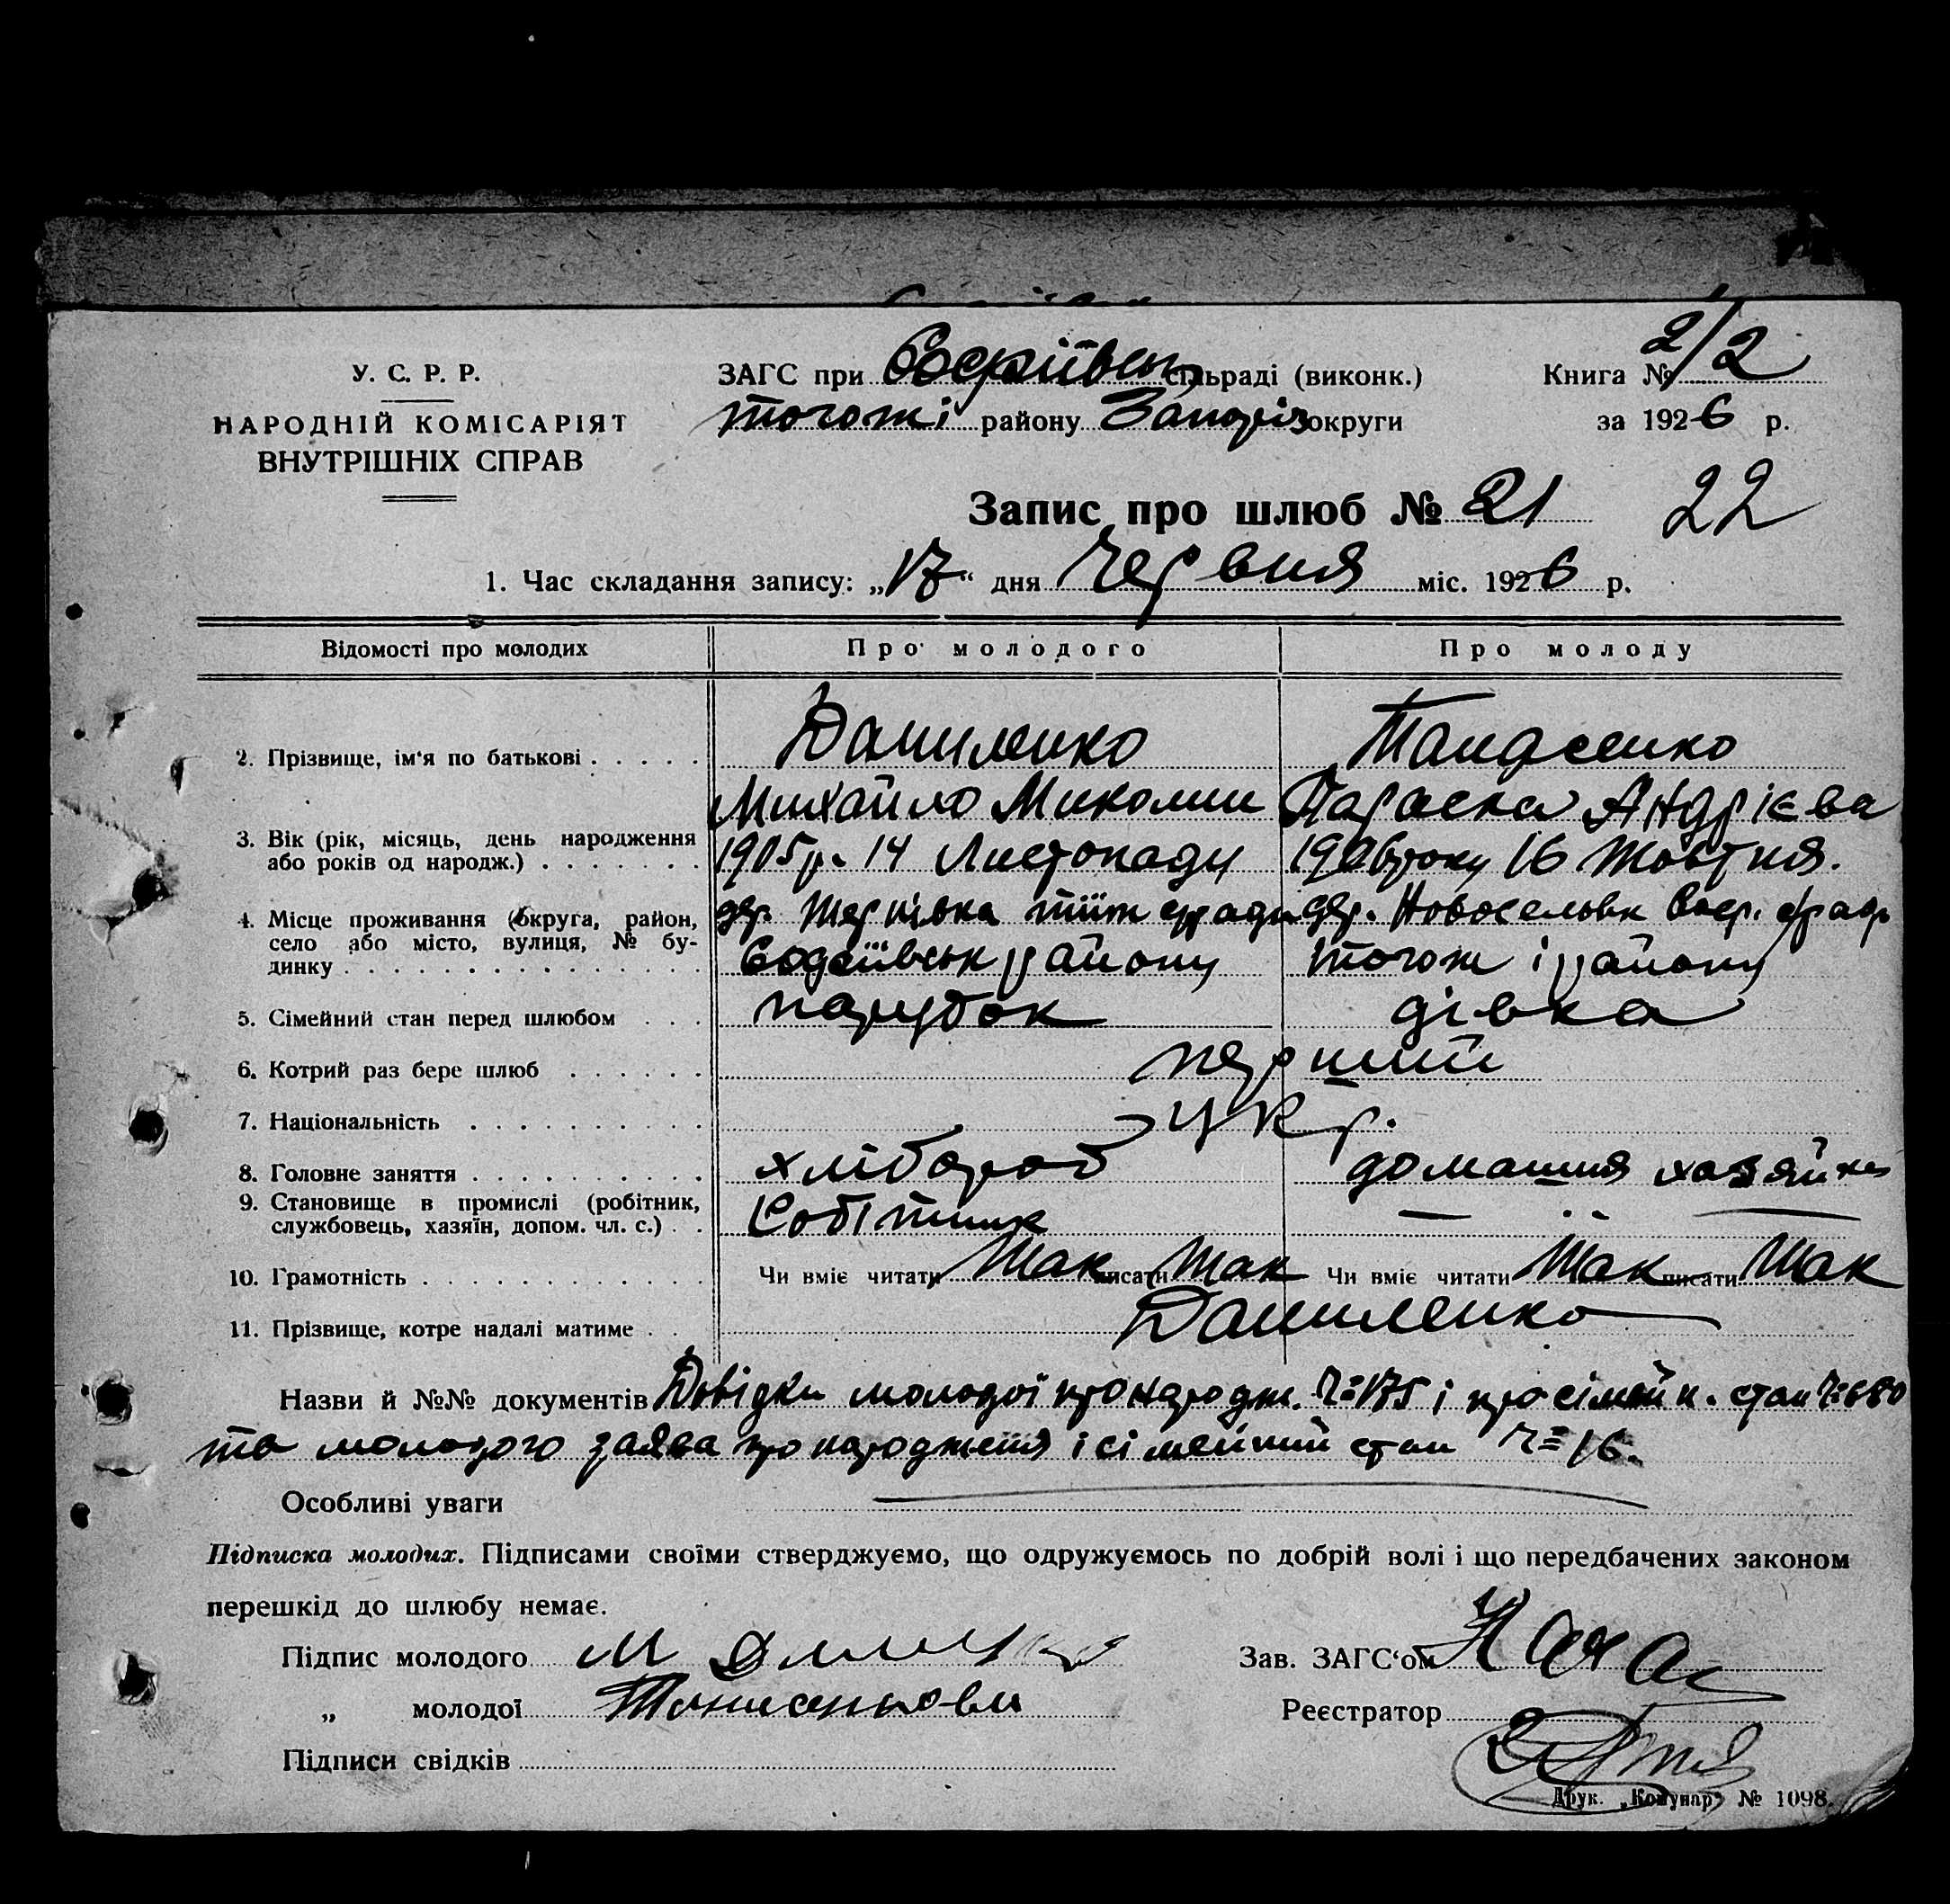 У. С. Р. Р.
НАРОДНІЙ КОМІСАРІЯТ
ВНУТРІШНІХ СПРАВ
ЗАГС при сільраді (виконк.)
тогожі району Запоріз округи
Книга № 2/2
за 1926 р.
Запис про шлюб № 21 22
1. Час складання запису: „17“ дня Червня міс. 1926 р.
Відомості про молодих Про молодого Про молоду
2. Прізвище, ім'я по батькові Даниленко
Михайло Миколин Параска Андрієва
3. Вік (рік, місяць, день народження
або років од народж.) 1905 р. 14 Листопаду 1906 року 16 Жовтня.
4. Місце проживання (округа, район,
село або місто, вулиця, № бу-
динку
дер. дер. Новосельвк
району тогож і району
5. Сімейний стан перед шлюбом парубок дівка
6. Котрий раз бере шлюб перший
7. Національність укр.
8. Головне заняття хлібороб домашня хазяйка
9. Становище в промислі (робітник,
службовець, хазяїн, допом. чл. с.) — —
10. Грамотність Чи вміє читати Так писати Так Чи вміє читати Так писати Так
11. Прізвище, котре надалі матиме Даниленко
Назви й №№ документів Довідки молодої про народж. Ч=175 і про сімейн. стан Ч=680
та молодого заява про народження і сімейний стан Ч=16.
Особливі уваги
Підписка молодих. Підписами своїми стверджуємо, що одружуємось по добрій волі і що передбачених законом
перешкід до шлюбу немає.
Підпис молодого М
„ молодої
Підписи свідків
Зав. ЗАГС'ом
Реєстратор
Друк. „Комунар" № 1098.